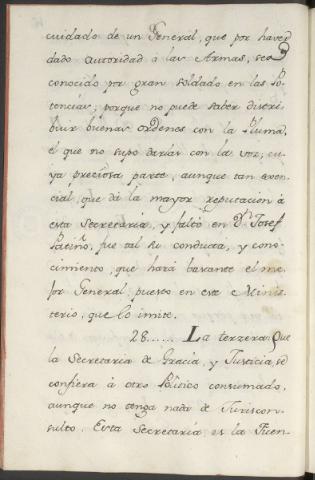 cuidado de un General, que por haver
dado autoridad à las Armas, sea
conocido por gran soldado en las Po-
tencias; porque no puede saber distri-
buir buenas ordenes con la Pluma,
èl que no supo darlas con la voz; cu-
ya preciosa parte, aunque tan esen-
cial, que dà la mayor reputacion à
esta Secretaria, y faltò en Dn. Josef
Patiño, fue tal su conducta, y cono-
cimiento, que harà bastante el me-
jor General, puesto en este Minis-
terio, que lo imite.
28...... La terzera: Que
la Secretaria de Gracia, y Justicia, se
confiera à otro Politico consumado,
aunque no tenga nada de Juriscon-
sulto. Esta Secretaria es la Fuen-